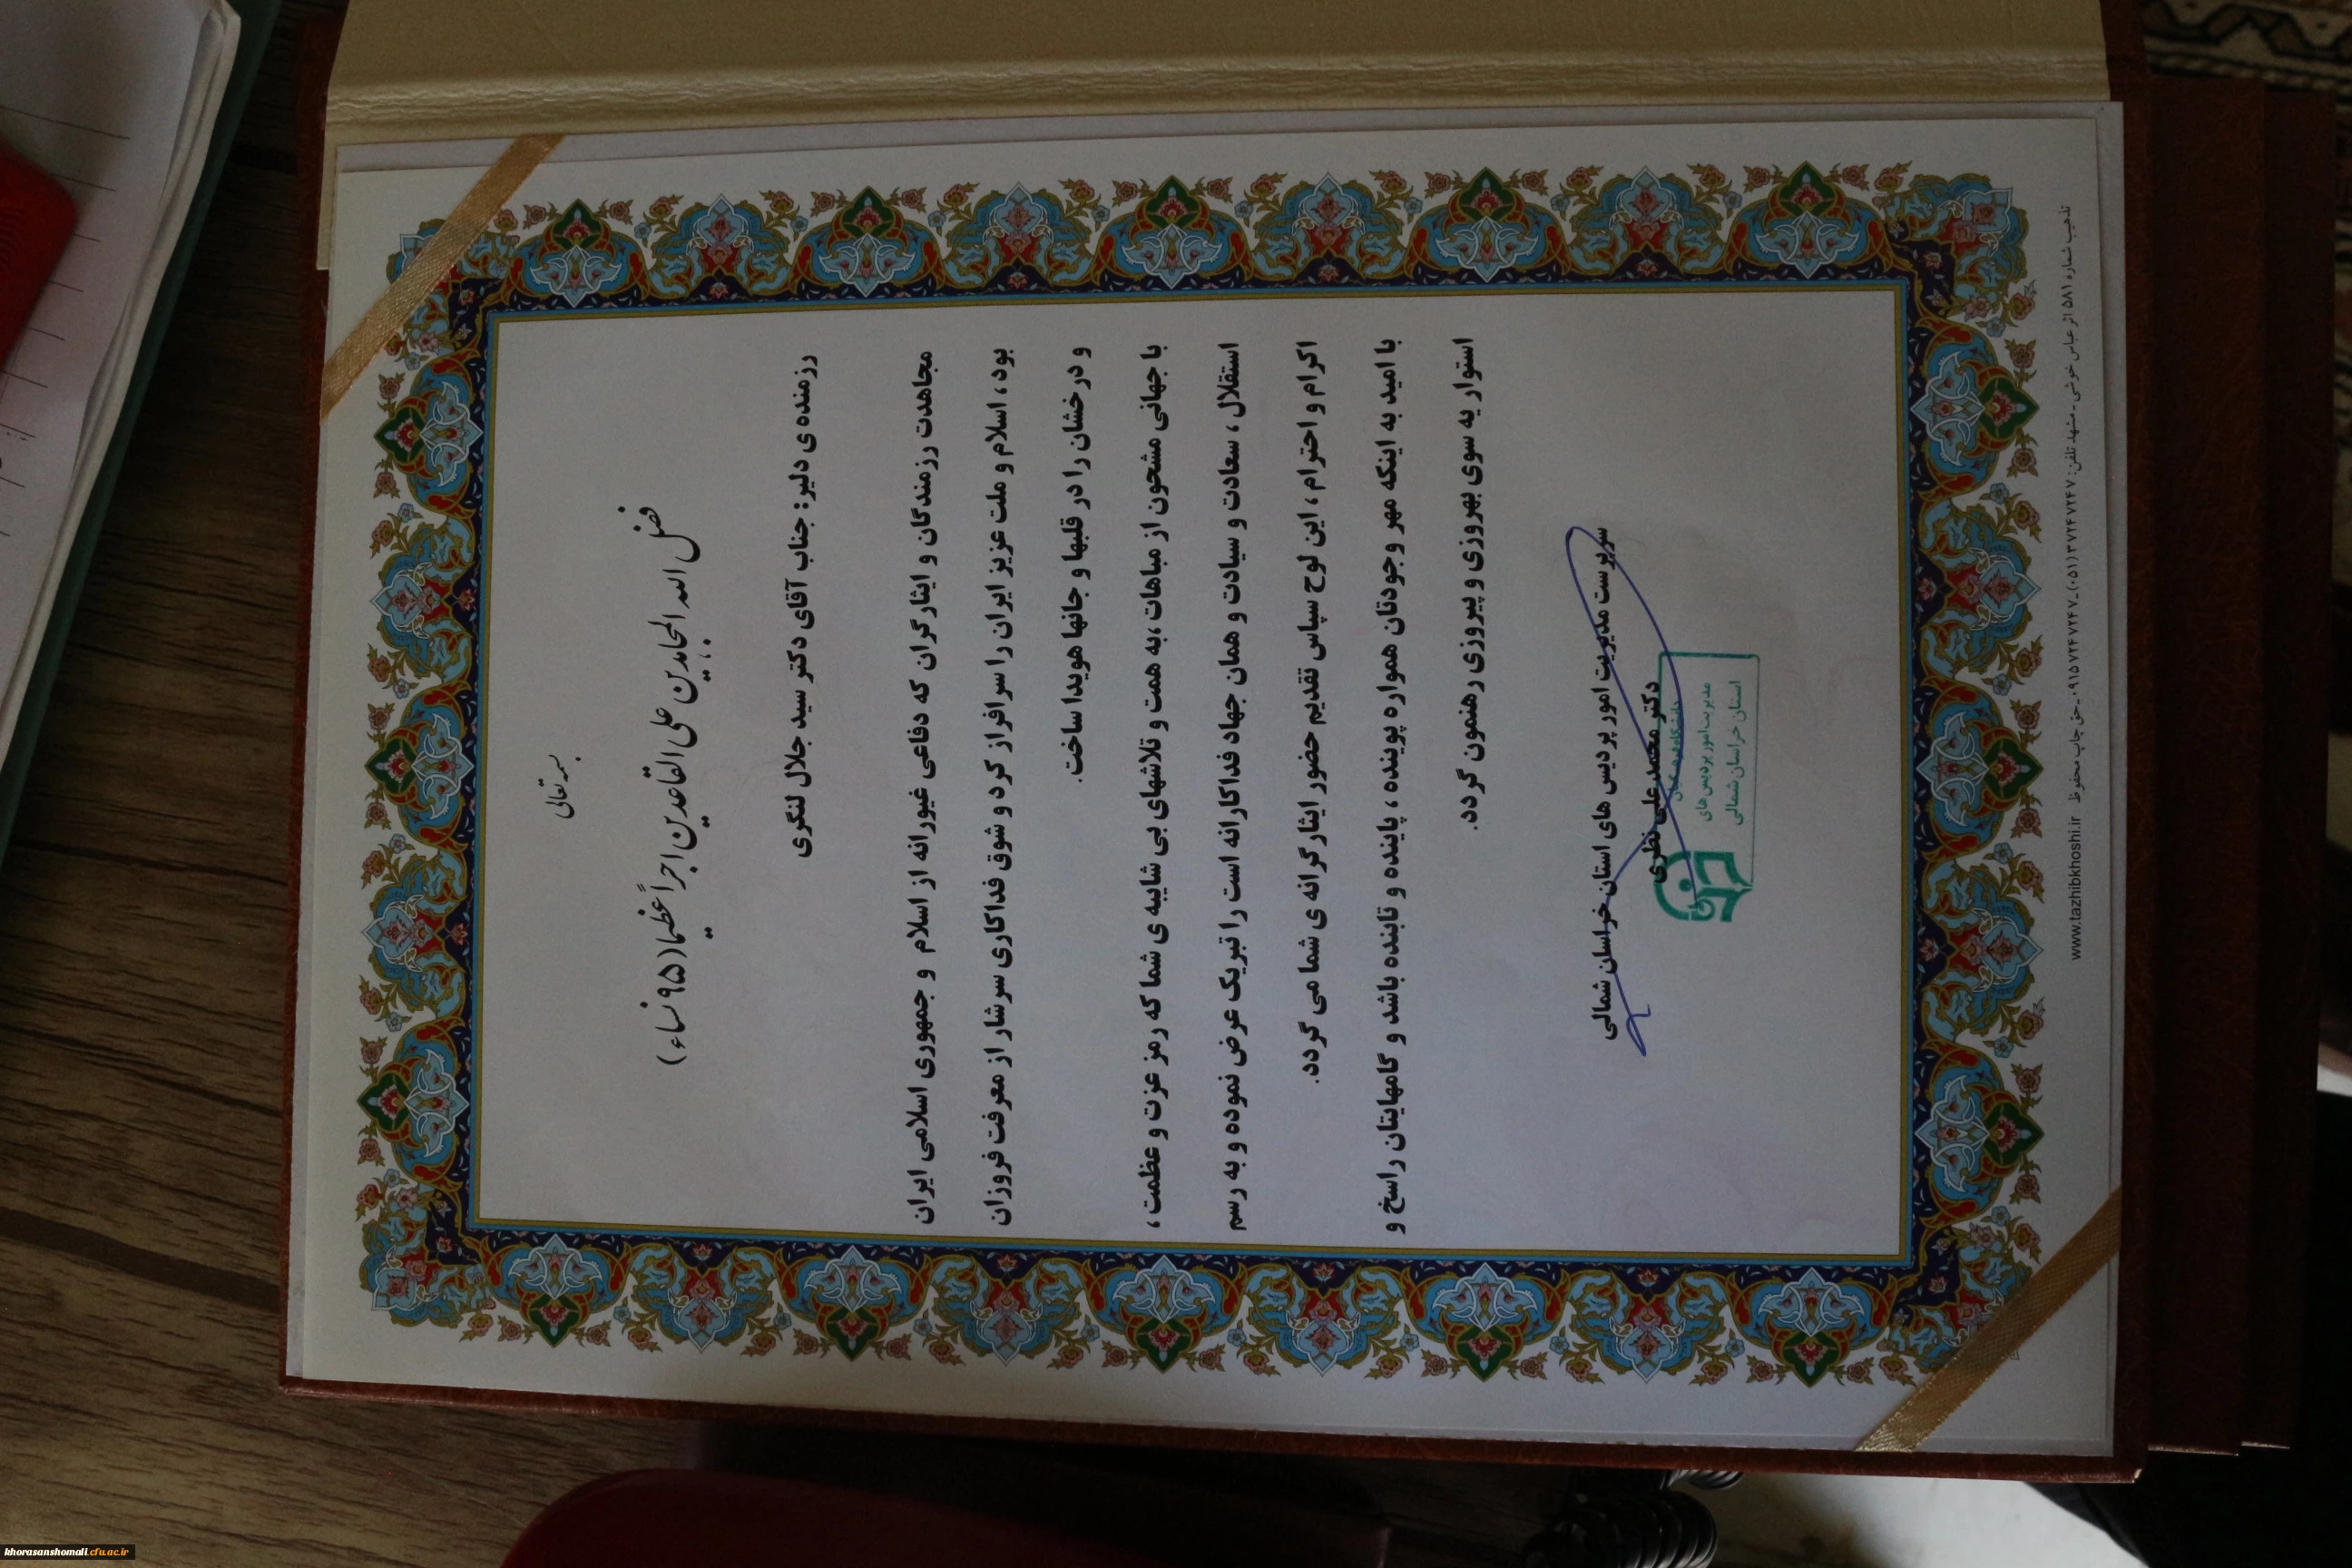 بسمه تعالی
فضل الله المجاهدین علی القاعدین اجراً عظیما (۹۵ نساء)
رزمنده ی دلیر: جناب آقای دکتر سید جلال لنگری
مجاهدت رزمندگان و ایثارگران که دفاعی غیورانه از اسلام و جمهوری اسلامی ایران
بود ، اسلام و ملت عزیز ایران را سرافراز کرد و شوق فداکاری سرشار از معرفت فروزان
و درخشان را در قلبها و جانها هویدا ساخت.
با جهانی مشحون از مباهات ،به همت و تلاشهای بی شایبه ی شما که رمز عزت و عظمت ،
استقلال ، سعادت و سیادت و همان جهاد فداکارانه است را تبریک عرض نموده و به رسم
اکرام و احترام ، این لوح سپاس تقدیم حضور ایثارگرانه ی شما می گردد.
با امید به اینکه مهر وجودتان همواره پوینده ، پاینده و تابنده باشد و گامهایتان راسخ و
استوار یه سوی بهروزی و پیروزی رهنمون گردد.
سرپرست مدیریت امور پردیس های استان خراسان شمالی
دکتر محمد علی نظری
دانشگاه فرهنگیان
مدیریت امور پردیس های
استان خراسان شمالی
تذهیب شماره ۵۸۱ اثر عباس خوشی ـ مشهد تلفن: ۳۷۲۴۷۲۴۷(۰۵۱) ـ ۰۹۱۵۷۲۴۷۲۴۷ ـ حق چاپ محفوظ www.tazhibkhoshi.ir
khorasanshomali.cfu.ac.ir